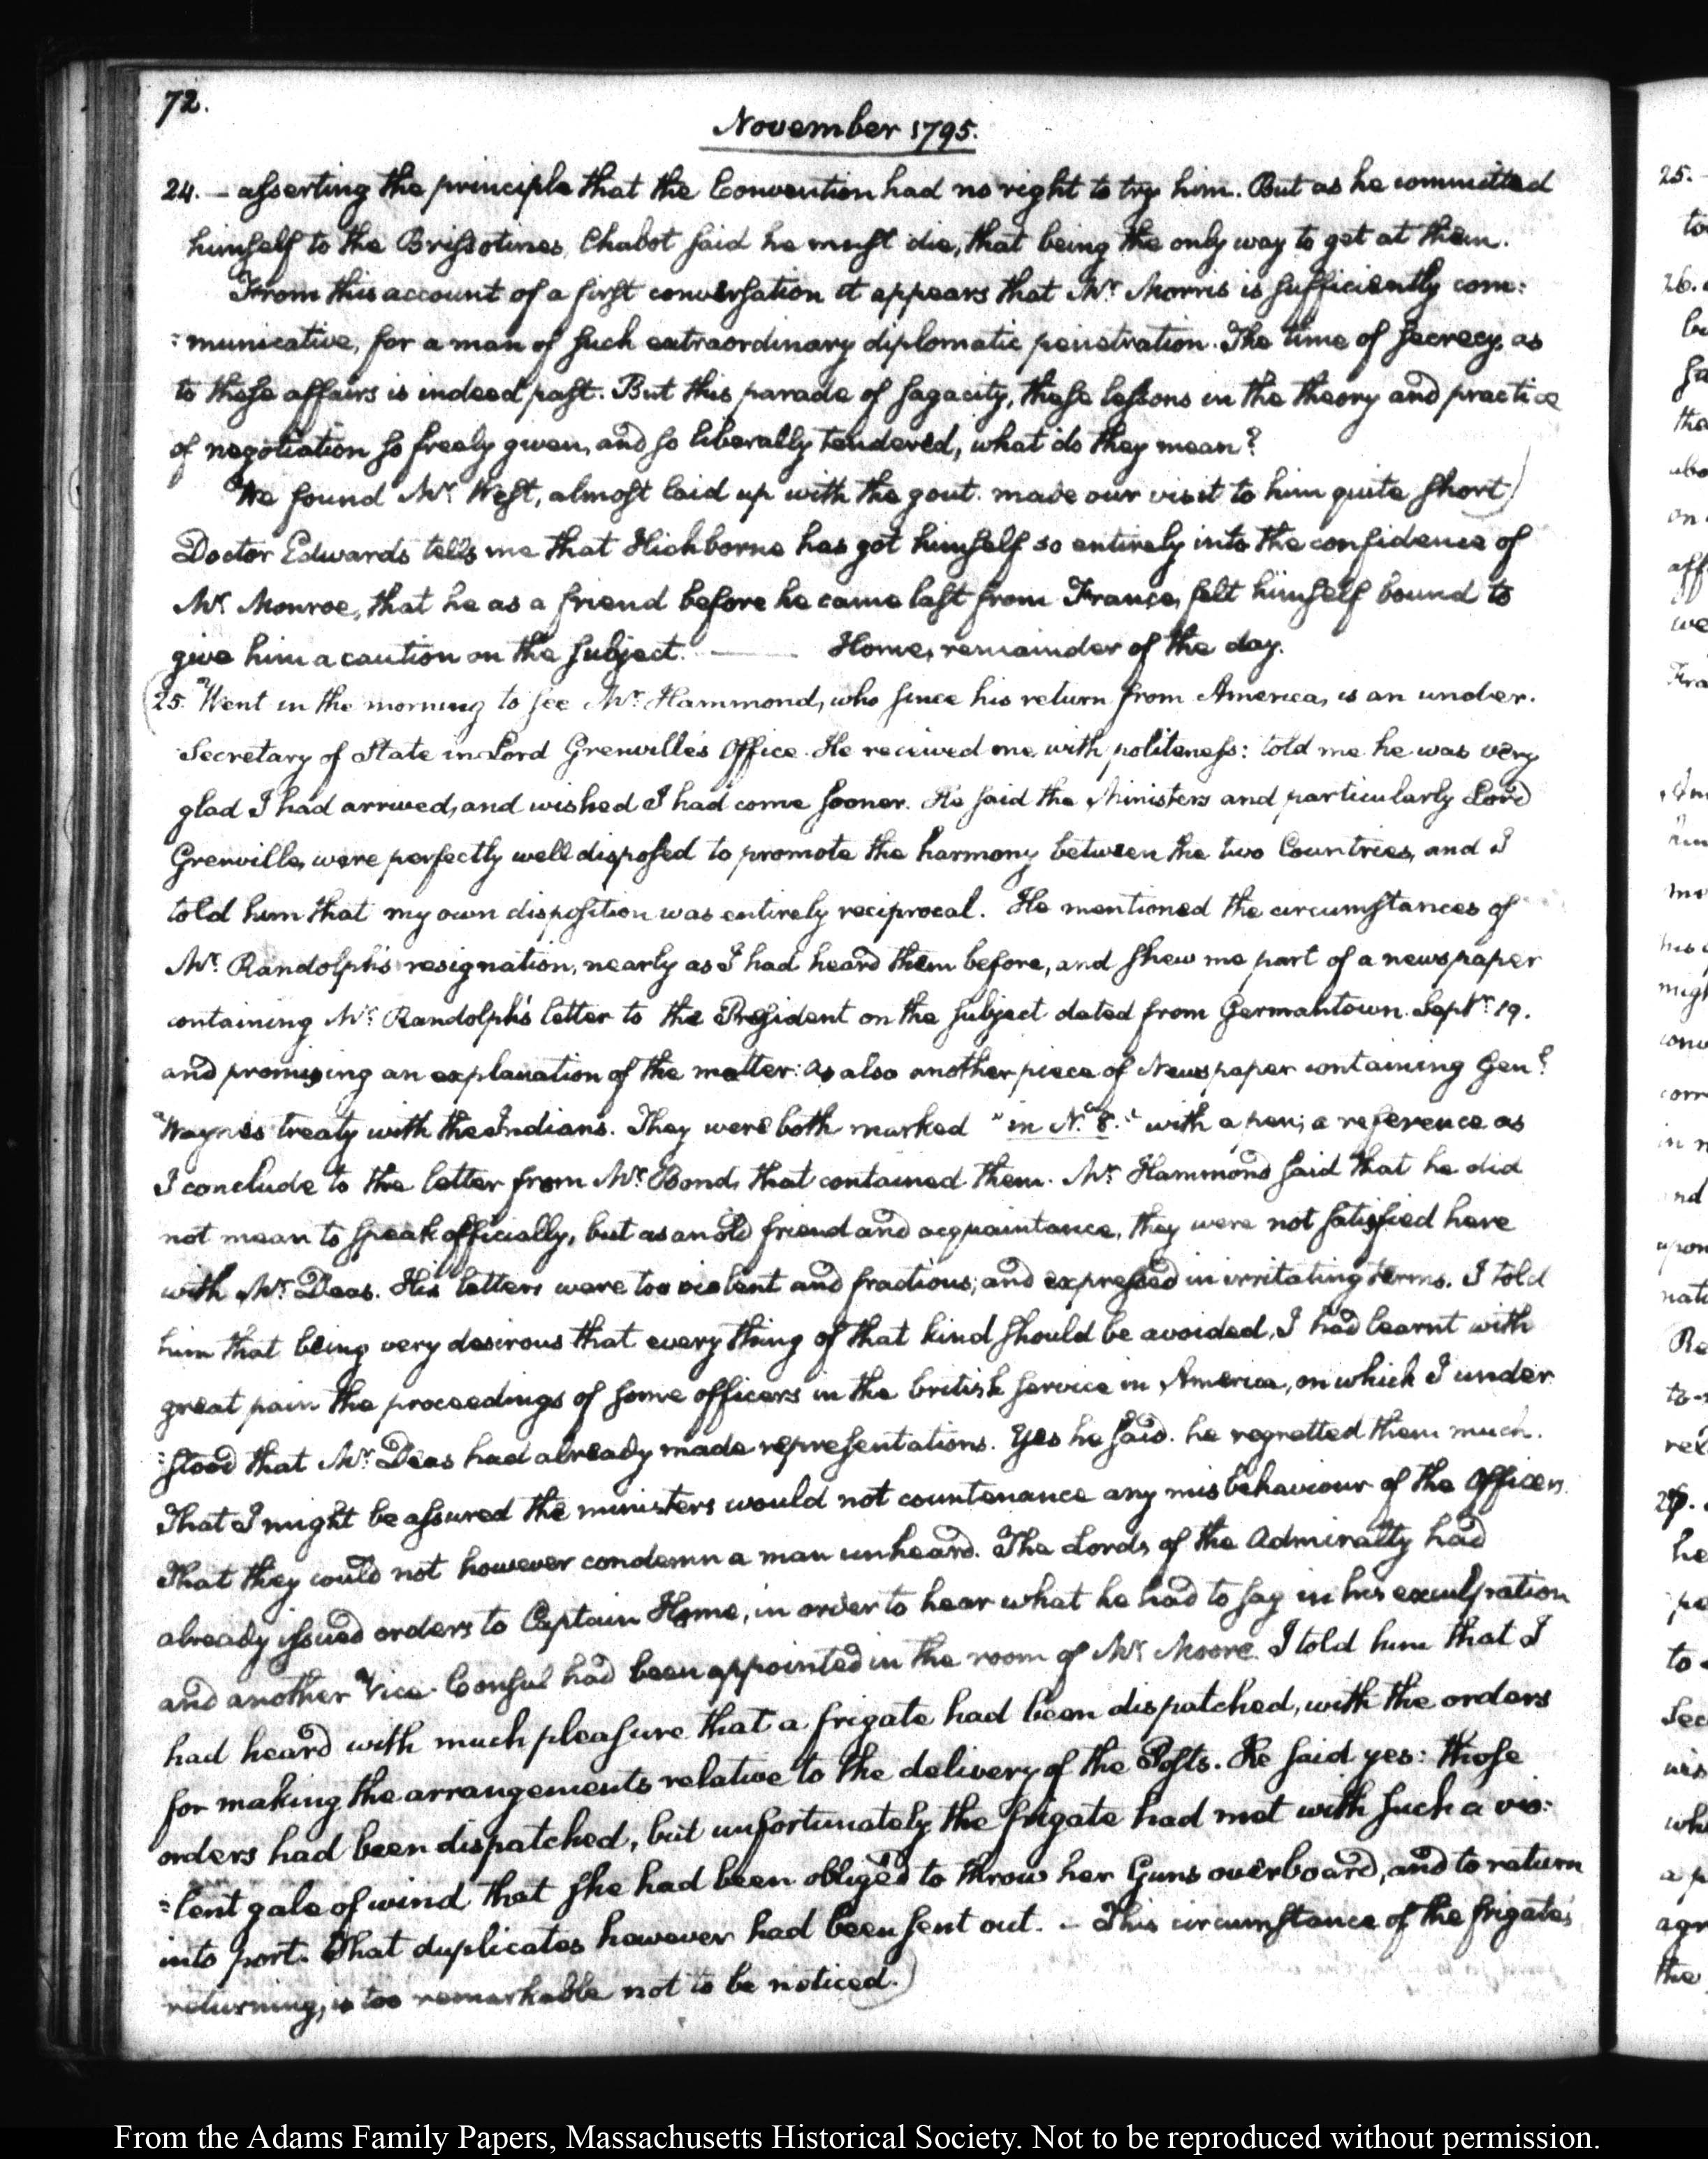 72.
November 1795.
24. – asserting the principle that the Convention had no right to try him. But as he committed
himself to the Brissotines, Chabot said he must die, that being the only way to get at them.
From this account of a first conversation it appears that Mr. Morris is sufficiently com:
:municative, for a man of such extraordinary diplomatic penetration. The time of secrecy as
to these affairs is indeed past. But this parade of sagacity, these lessons in the theory and practice
of negotiation so freely given, and so liberally tendered, what do they mean?
We found Mr. West, almost laid up with the gout. made our visit to him quite short)
Doctor Edwards tells me that Hichborne has got himself so entirely into the confidence of
Mr. Monroe, that he as a friend before he came last from France, felt himself bound to
give him a caution on the subject. —— Home, remainder of the day.
(25. Went in the morning to see Mr. Hammond, who since his return from America, is an under.
Secretary of State in Lord Grenville's Office. He received me with politeness: told me he was very
glad I had arrived, and wished I had come sooner. He said the Ministers and particularly Lord
Grenville, were perfectly well disposed to promote the harmony between the two Countries, and I
told him that my own disposition was entirely reciprocal. He mentioned the circumstances of
Mr. Randolph's resignation, nearly as I had heard them before, and shew me part of a newspaper
containing Mr. Randolph's letter to the President on the subject dated from Germantown. Septr. 19.
and promising an explanation of the matter: as also another piece of Newspaper containing Genl.
Wayne's treaty with the Indians. They were both marked "in No. 8." with a pen; a reference as
I conclude to the letter from Mr. Bond, that contained them. Mr. Hammond said that he did
not mean to speak officially, but as an old friend and acquaintance, they were not satisfied here
with Mr. Deas. His letters were too violent and fractious; and expressed in irritating terms. I told
him that being very desirous that every thing of that kind should be avoided, I had learnt with
great pain the proceedings of some officers in the british service in America, on which I under
:stood that Mr. Deas had already made representations. Yes he said. he regretted them much.
That I might be assured the ministers would not countenance any misbehaviour of the Officers.
That they could not however condemn a man unheard. The Lords of the Admiralty had
already issued orders to Captain Home, in order to hear what he had to say in his exculpation
and another Vice-Consul had been appointed in the room of Mr. Moore. I told him that I
had heard with much pleasure that a frigate had been dispatched, with the orders
for making the arrangements relative to the delivery of the Posts. He said yes: those
orders had been dispatched, but unfortunately the frigate had met with such a vio:
:lent gale of wind that she had been obliged to throw her Guns overboard, and to return
into port. That duplicates however had been sent out. – This circumstance of the frigate's
returning, is too remarkable not to be noticed.)
From the Adams Family Papers, Massachusetts Historical Society. Not to be reproduced without permission.